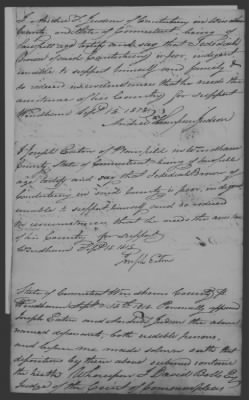 I Andrew T. Judson of Canterbury in Windham
County, and State of Connecticut being of
lawful age testify and say that Jedediah
Bowen of said Canterbury is poor, indigent
unable to support himself and family &
so reduced in circumstances that he needs the
assistance of his Country for support
Windham Sept. 15 18
Andrew Judson
I Joseph Eaton of Plainfield in Windham
County State of Connecticut being of lawful
age testify and say that Jedediah Bowen of
Canterbury in said County is poor, indigent
unable to support himself, and so reduced
by circumstances that he needs the assistance
of his Country for support
Windham Sept. 15. 18
Joseph Eaton
State of Connecticut Windham County ss
Windham Sept. 15th Personally appeared
Joseph Eaton and Andrew T. Judson the above
named deponents, both credible persons,
and before me made solemn oath that
depositions by them above subscribed contains
the truth. Whereupon I David Bolles Esq.
Judge of the Court of Common Pleas